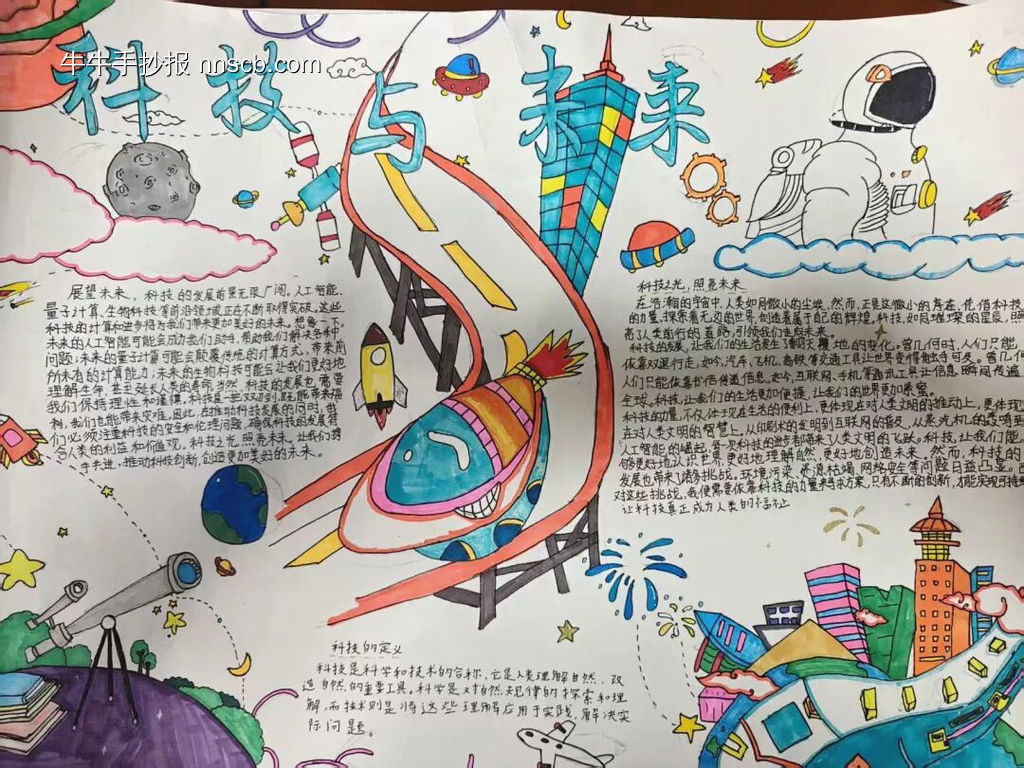 牛牛手抄报 nnscb.com
科技与未来
展望未来,科技的发展前景无限广阔,人工智能,
量子计算、生物科技等前沿领域正在不断取得突破。这些
科技的计算和进步将为我们带来更加美好的未来。想象一下,
未来的人工智能可能会成为我们的助手,帮助我们解决各种
问题;未来的量子计算可能会颠覆传统的计算方式,带来前
所未有的计算能力;未来的生物科技可能会让我们更好地
理解生命,甚至延长人类的寿命。当然,科技的发展也需要
我们保持理性和谨慎。科技是一把双刃剑,既能带来福
祉,我们也能带来灾难。因此,在推动科技发展的同时,我
们必须注重科技的安全和伦理问题,确保科技的发展符
合人类的利益和价值观。科技之光,照亮未来。让我们携
手共进,推动科技创新,创造更加美好的未来。
科技之光,照亮未来
在浩瀚的宇宙中,人类如同微小的尘埃,然而,正是这微小的存在,凭借科技
的力量,探索着无边的世界,创造着属于自己的辉煌。科技,如同璀璨的星辰,照
亮了人类前行的道路,引领我们走向未来
科技的发展,让我们的生活发生了翻天覆地的变化。曾几何时,人们只能
依靠双腿行走,如今,汽车、飞机、高铁等交通工具让世界变得触手可及。曾几何
人们只能依靠书信传递信息,如今,互联网、手机等通讯工具让信息瞬间传遍
全球。科技,让我们的生活更加便捷,让我们的世界更加紧密。
科技的力量,不仅体现在生活的便利上,更体现在对人类文明的推动上,更体现
在对人类文明的智慧上,从印刷术的发明到互联网的普及,从蒸汽机的轰鸣到
人工智能的崛起,每一次科技的进步都带来了人类文明的飞跃。科技,让我们能
够更好地认识世界,更好地理解自然,更好地创造未来,然而,科技的
发展也带来了诸多挑战。环境污染、资源枯竭、网络安全等问题日益凸显。
对这些挑战,我们需要依靠科技的力量来寻求方案,只有不断的创新,才能实现可持续
让科技真正成为人类的福祉
科技的定义
科技是科学和技术的合称,它是人类理解自然、改
造自然的重要工具,科学是对自然规律的探索和理
解,而技术则是将这些理解应用于实践,解决实
际问题。